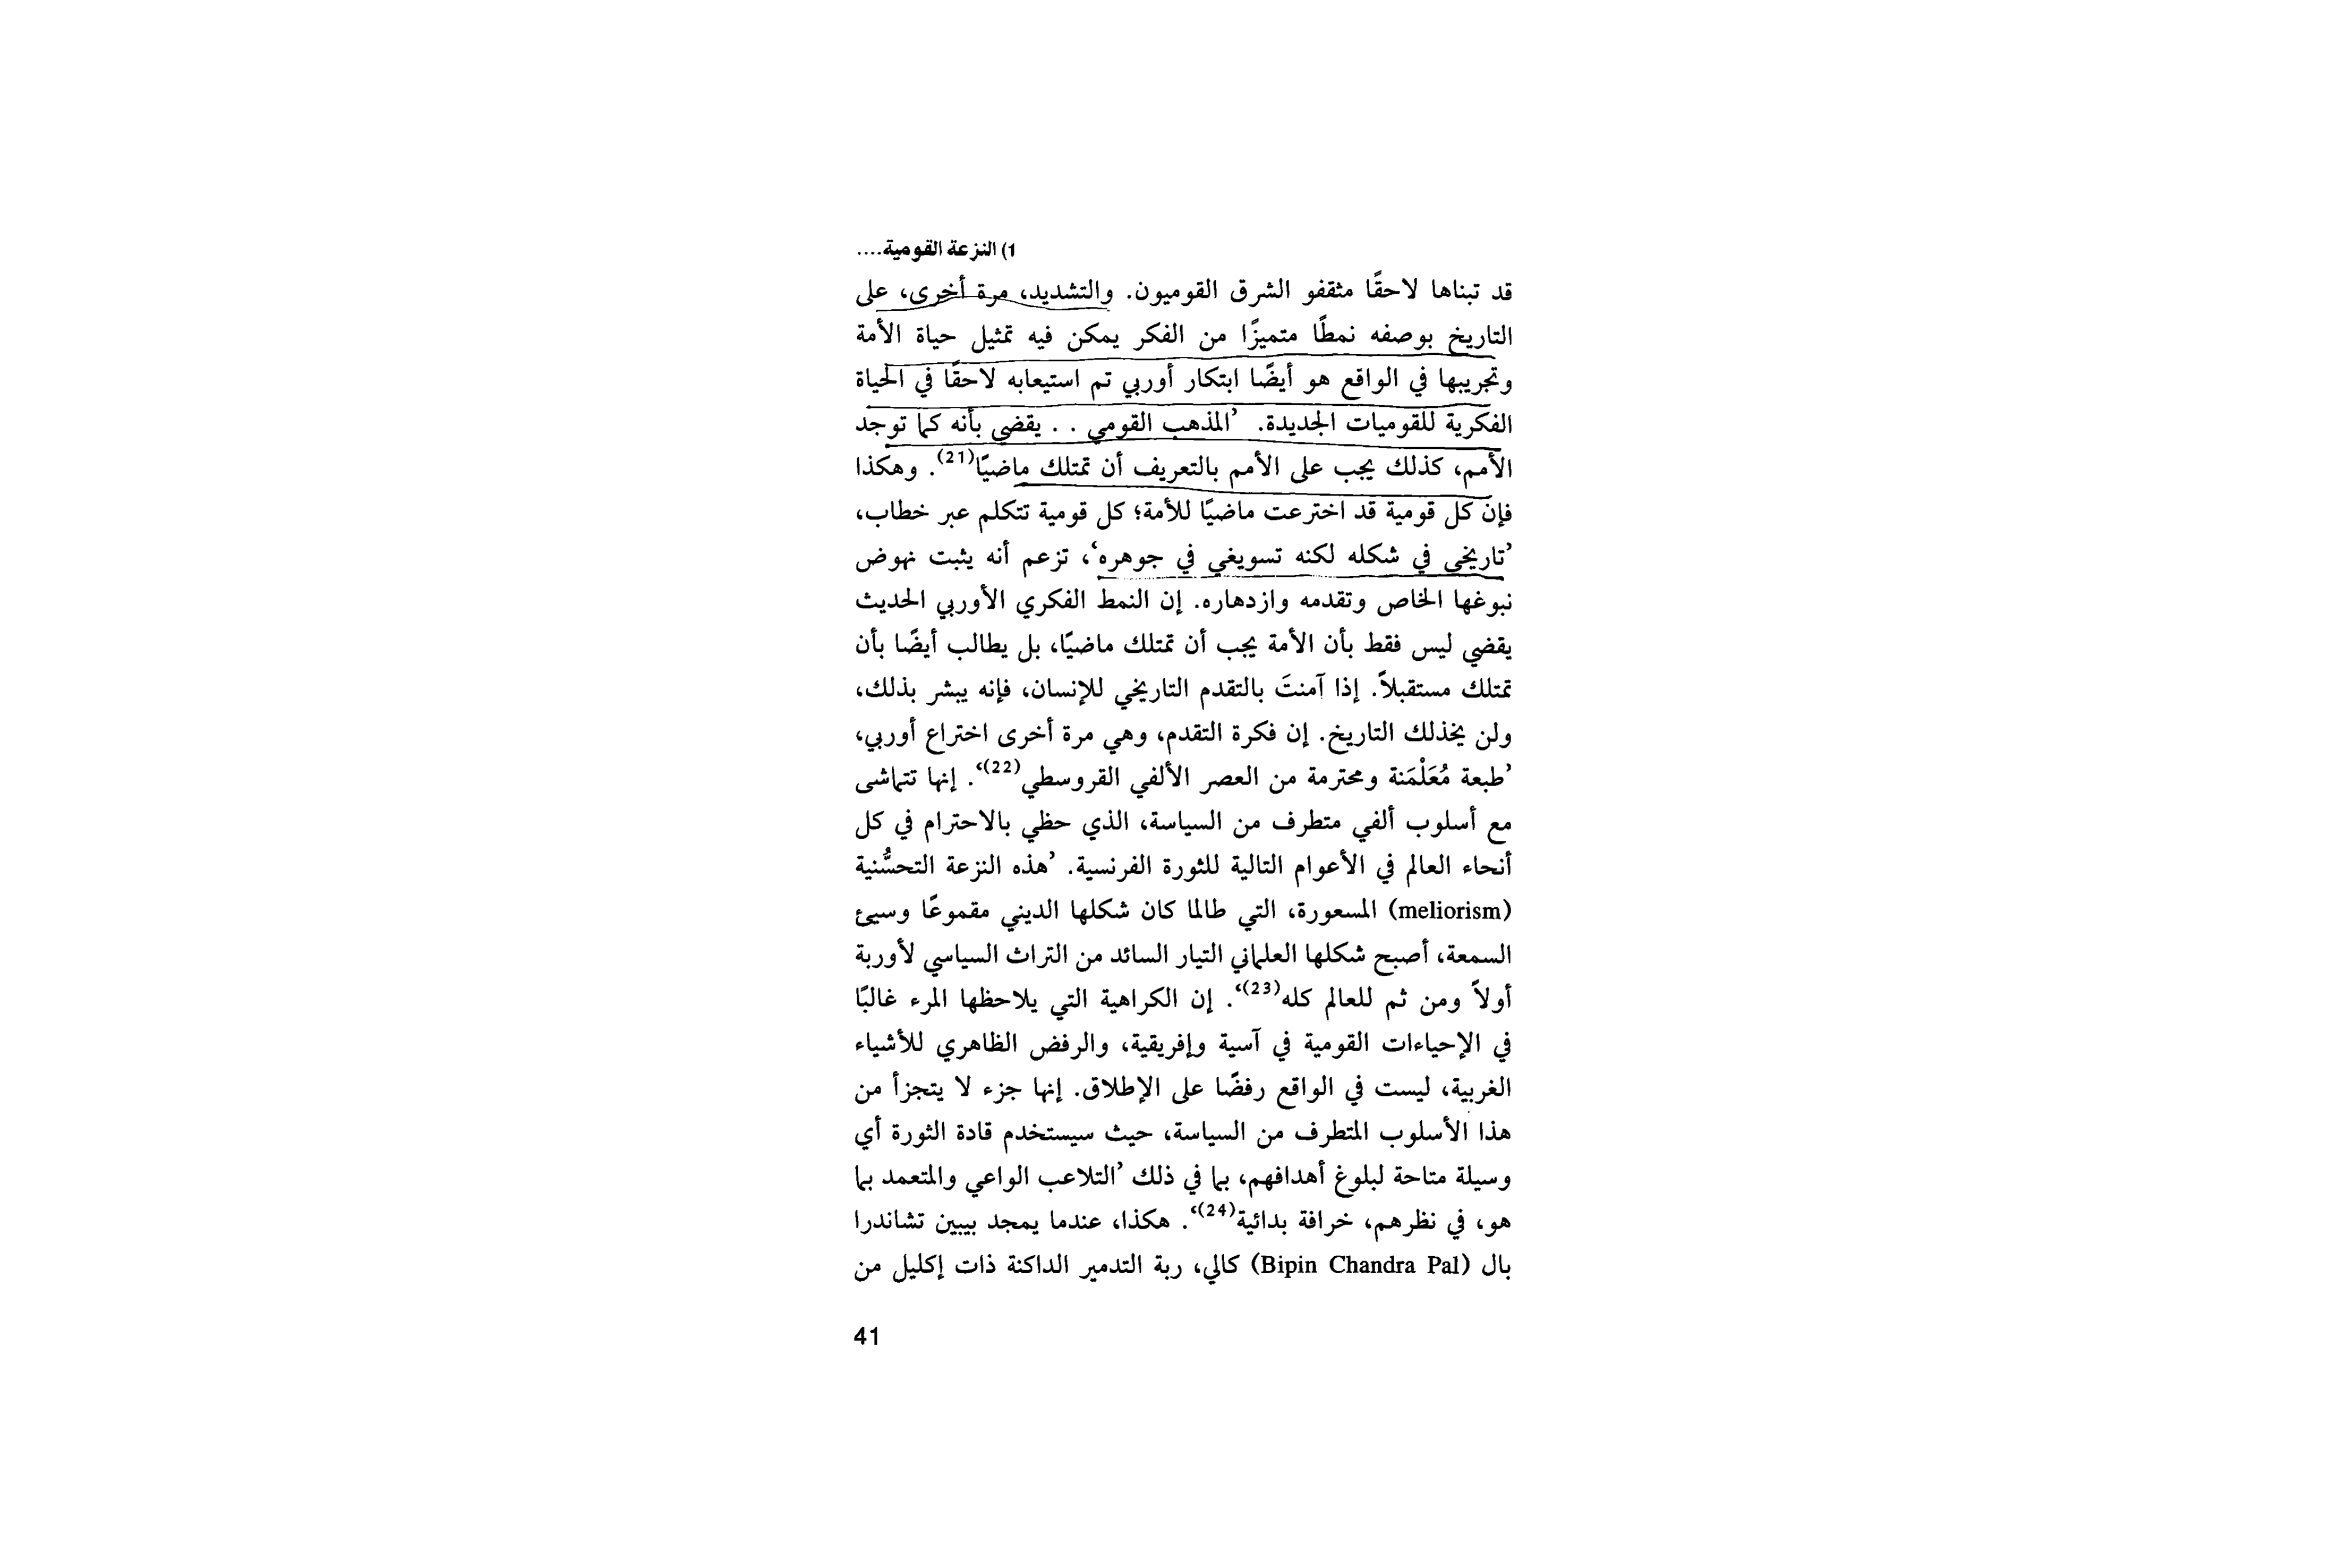 1) النزعة القومية....
قد تبناها لاحقًا مثقفو الشرق القوميون. والتشديد، مرة أخرى، على
التاريخ بوصفه نمطًا متميزًا من الفكر يمكن فيه تمثيل حياة الأمة
وتجريبها في الواقع هو أيضًا ابتكار أوربي تم استيعابه لاحقًا في الحياة
الفكرية للقوميات الجديدة. ’المذهب القومي . . يقضي بأنه كما توجد
الأمم، كذلك يجب على الأمم بالتعريف أن تمتلك ماضيًا(21). وهكذا
فإن كل قومية قد اخترعت ماضيًا للأمة؛ كل قومية تتكلم عبر خطاب،
’تاريخي في شكله لكنه تسويغي في جوهره‘، تزعم أنه يثبت نهوض
نبوغها الخاص وتقدمه وازدهاره. إن النمط الفكري الأوربي الحديث
يقضي ليس فقط بأن الأمة يجب أن تمتلك ماضيًا، بل يطالب أيضًا بأن
تمتلك مستقبلاً. إذا آمنتَ بالتقدم التاريخي للإنسان، فإنه يبشر بذلك،
ولن يخذلك التاريخ. إن فكرة التقدم، وهي مرة أخرى اختراع أوربي،
’طبعة مُعَلْمَنة ومحترمة من العصر الألفي القروسطي(22)‘. إنها تتماشى
مع أسلوب ألفي متطرف من السياسة، الذي حظي بالاحترام في كل
أنحاء العالم في الأعوام التالية للثورة الفرنسية. ’هذه النزعة التحسُّنية
(meliorism) المسعورة، التي طالما كان شكلها الديني مقموعًا وسيئ
السمعة، أصبح شكلها العلماني التيار السائد من التراث السياسي لأوربة
أولاً ومن ثم للعالم كله(23)‘. إن الكراهية التي يلاحظها المرء غالبًا
في الإحياءات القومية في آسية وإفريقية، والرفض الظاهري للأشياء
الغربية، ليست في الواقع رفضًا على الإطلاق. إنها جزء لا يتجزأ من
هذا الأسلوب المتطرف من السياسة، حيث سيستخدم قادة الثورة أي
وسيلة متاحة لبلوغ أهدافهم، بما في ذلك ’التلاعب الواعي والمتعمد بما
هو، في نظرهم، خرافة بدائية(24)‘. هكذا، عندما يمجد بيبين تشاندرا
بال (Bipin Chandra Pal) كالي، ربة التدمير الداكنة ذات إكليل من
41